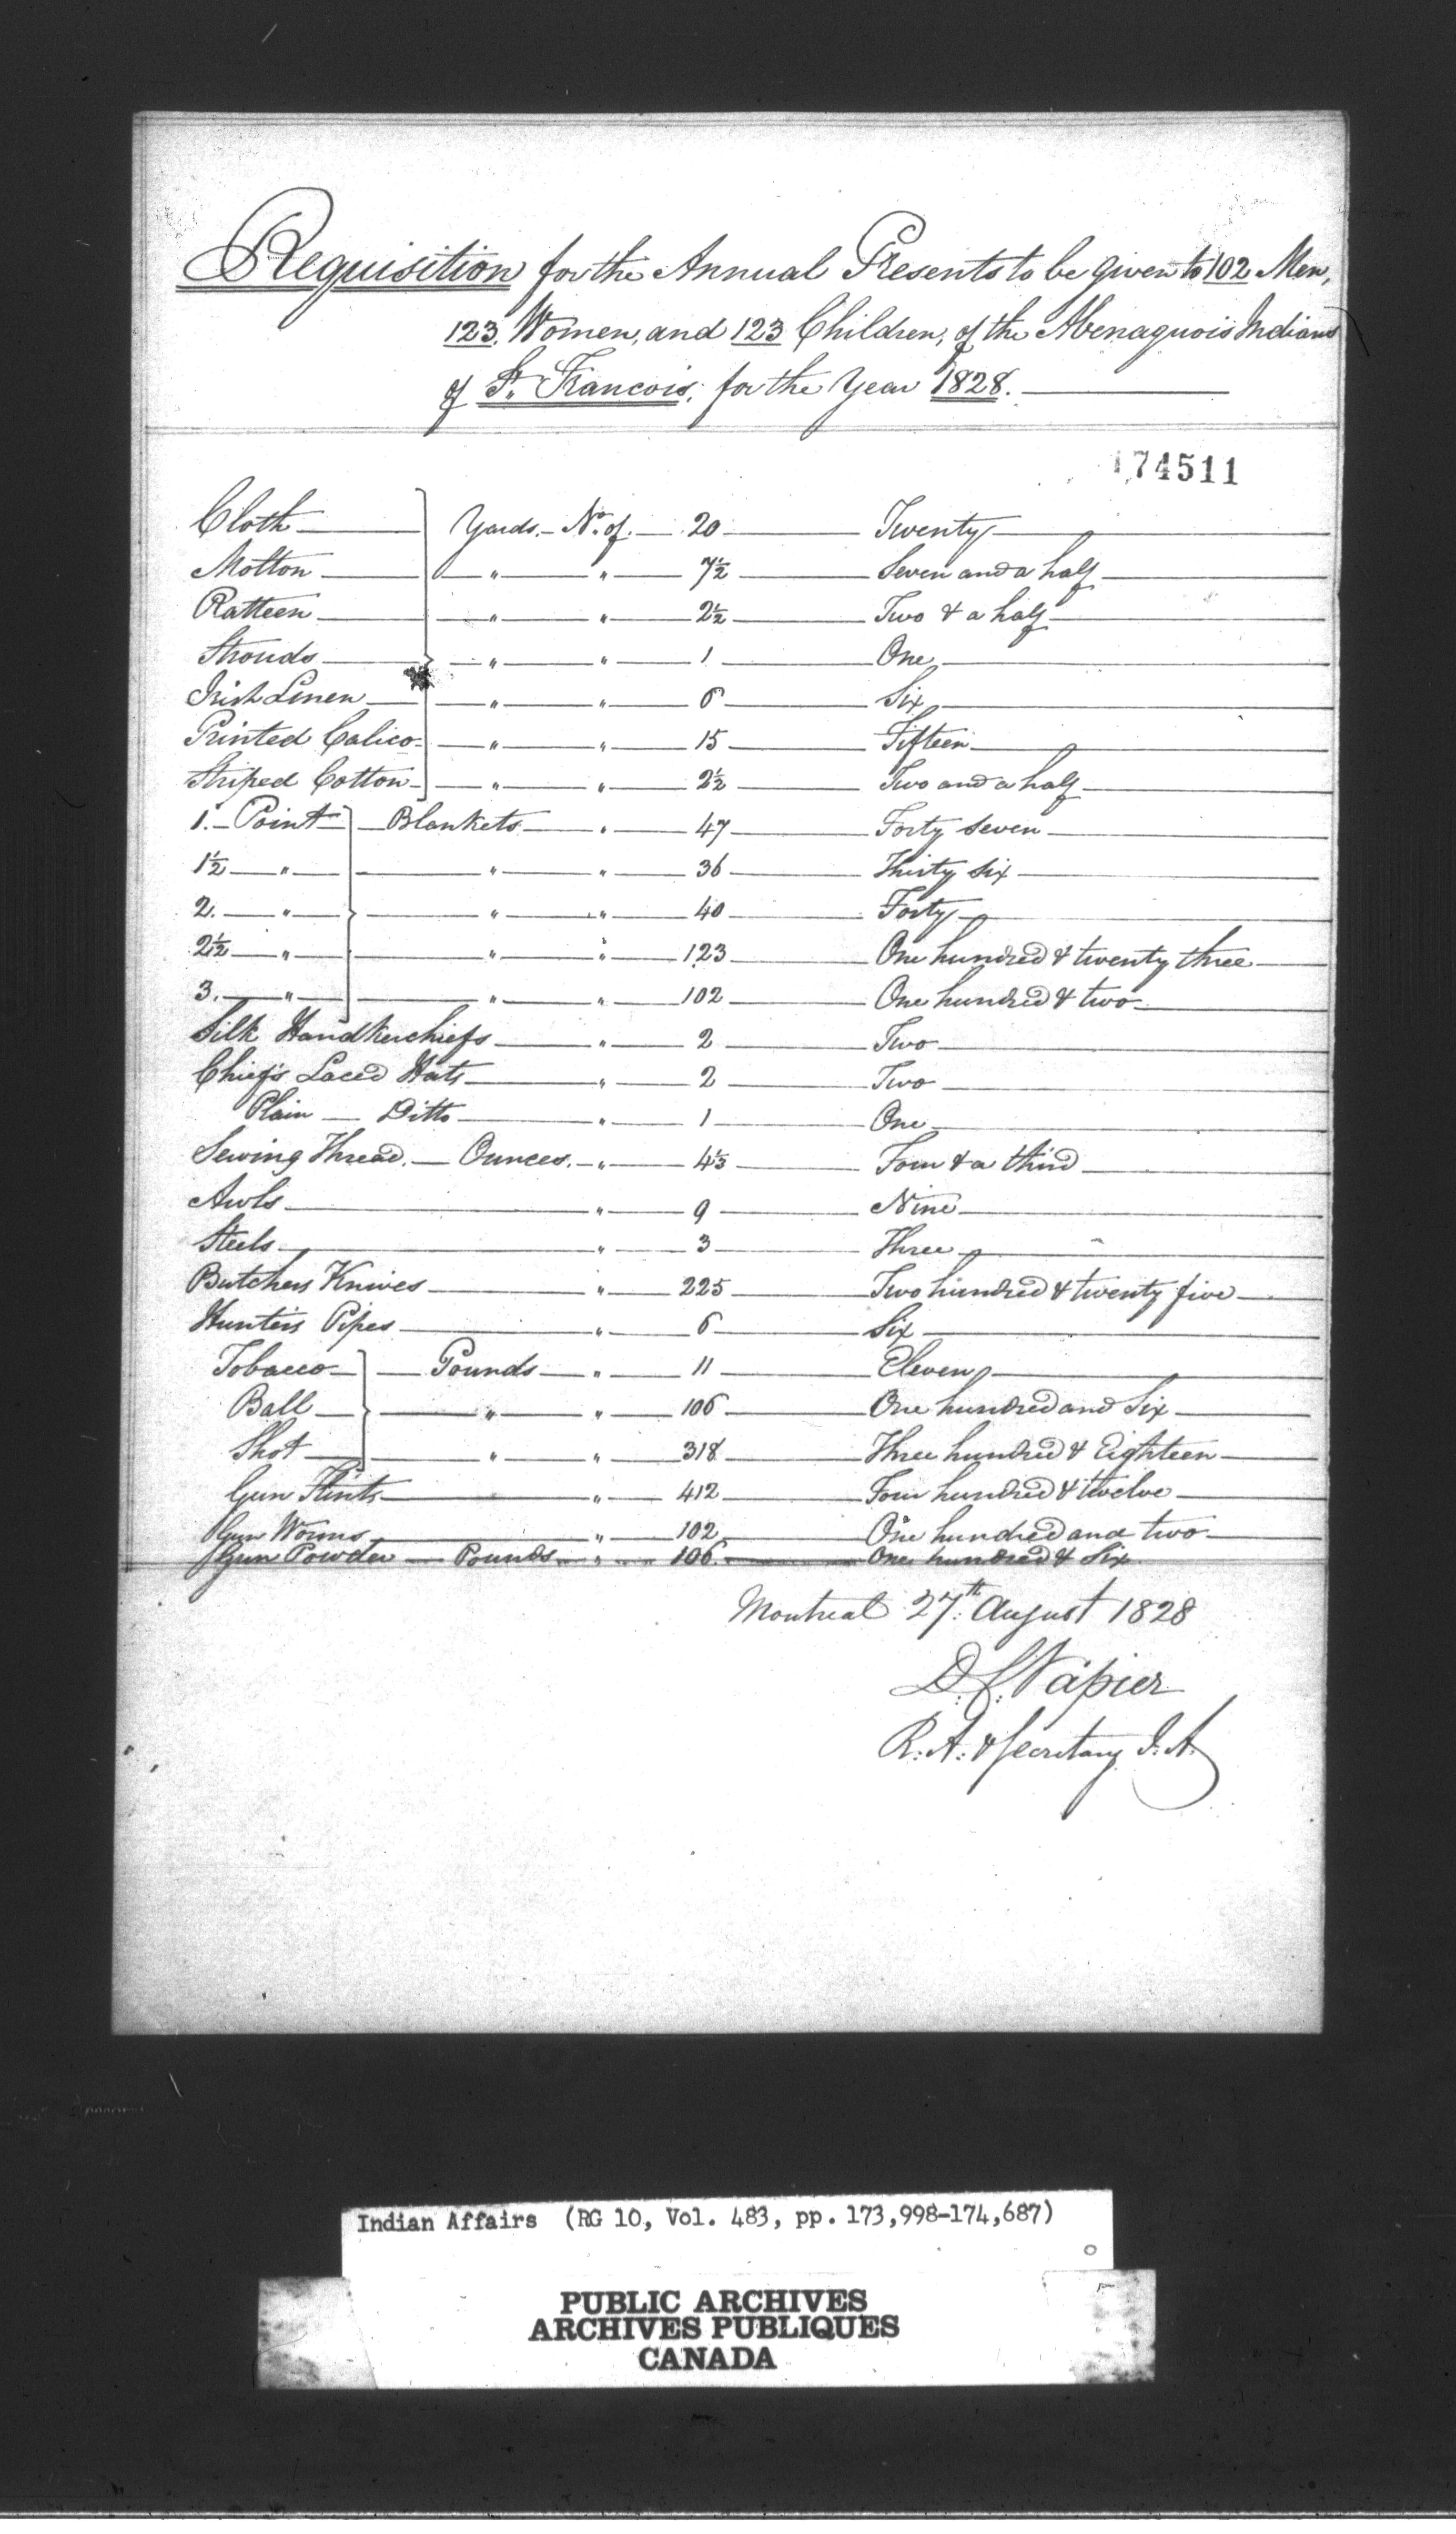 Requisition for the Annual Presents to be given to 102 Men,
123, Women, and 123 Children, of the Abenaquois Indians
of St. Francois, for the Year 1828.
174511
Cloth Yards. No. of. 20 Twenty
Molton " " 7½ Seven and a half
Ratteen " " 2½ Two & a half
Strouds " " 1 One
Irish Linen " " 6 Six
Printed Calico " " 15 Fifteen
Striped Cotton " " 2½ Two and a half
1. Point Blankets " 47 Forty seven
1½ " " " 36 Thirty six
2. " " " 40 Forty
2½ " " " 123 One hundred & twenty three
3. " " " 102 One hundred & two
Silk Handkerchiefs " 2 Two
Chief's Laced Hats " 2 Two
Plain Ditto " 1 One
Sewing Thread. Ounces. " 4⅓ Four & a third
Awls " 9 Nine
Steels " 3 Three
Butchers Knives " 225 Two hundred & twenty five
Hunter's Pipes " 6 Six
Tobacco Pounds " 11 Eleven
Ball " " 106 One hundred and Six
Shot " " 318 Three hundred & Eighteen
Gun Flints " 412 Four hundred & twelve
Gun Worms " 102 One hundred and two
Gun Powder Pounds " 106 One hundred & Six
Montreal 27th. August 1828
D. C. Napier
R. A. & Secretary I. A.
Indian Affairs (RG 10, Vol. 483, pp. 173,998-174,687)
PUBLIC ARCHIVES
ARCHIVES PUBLIQUES
CANADA